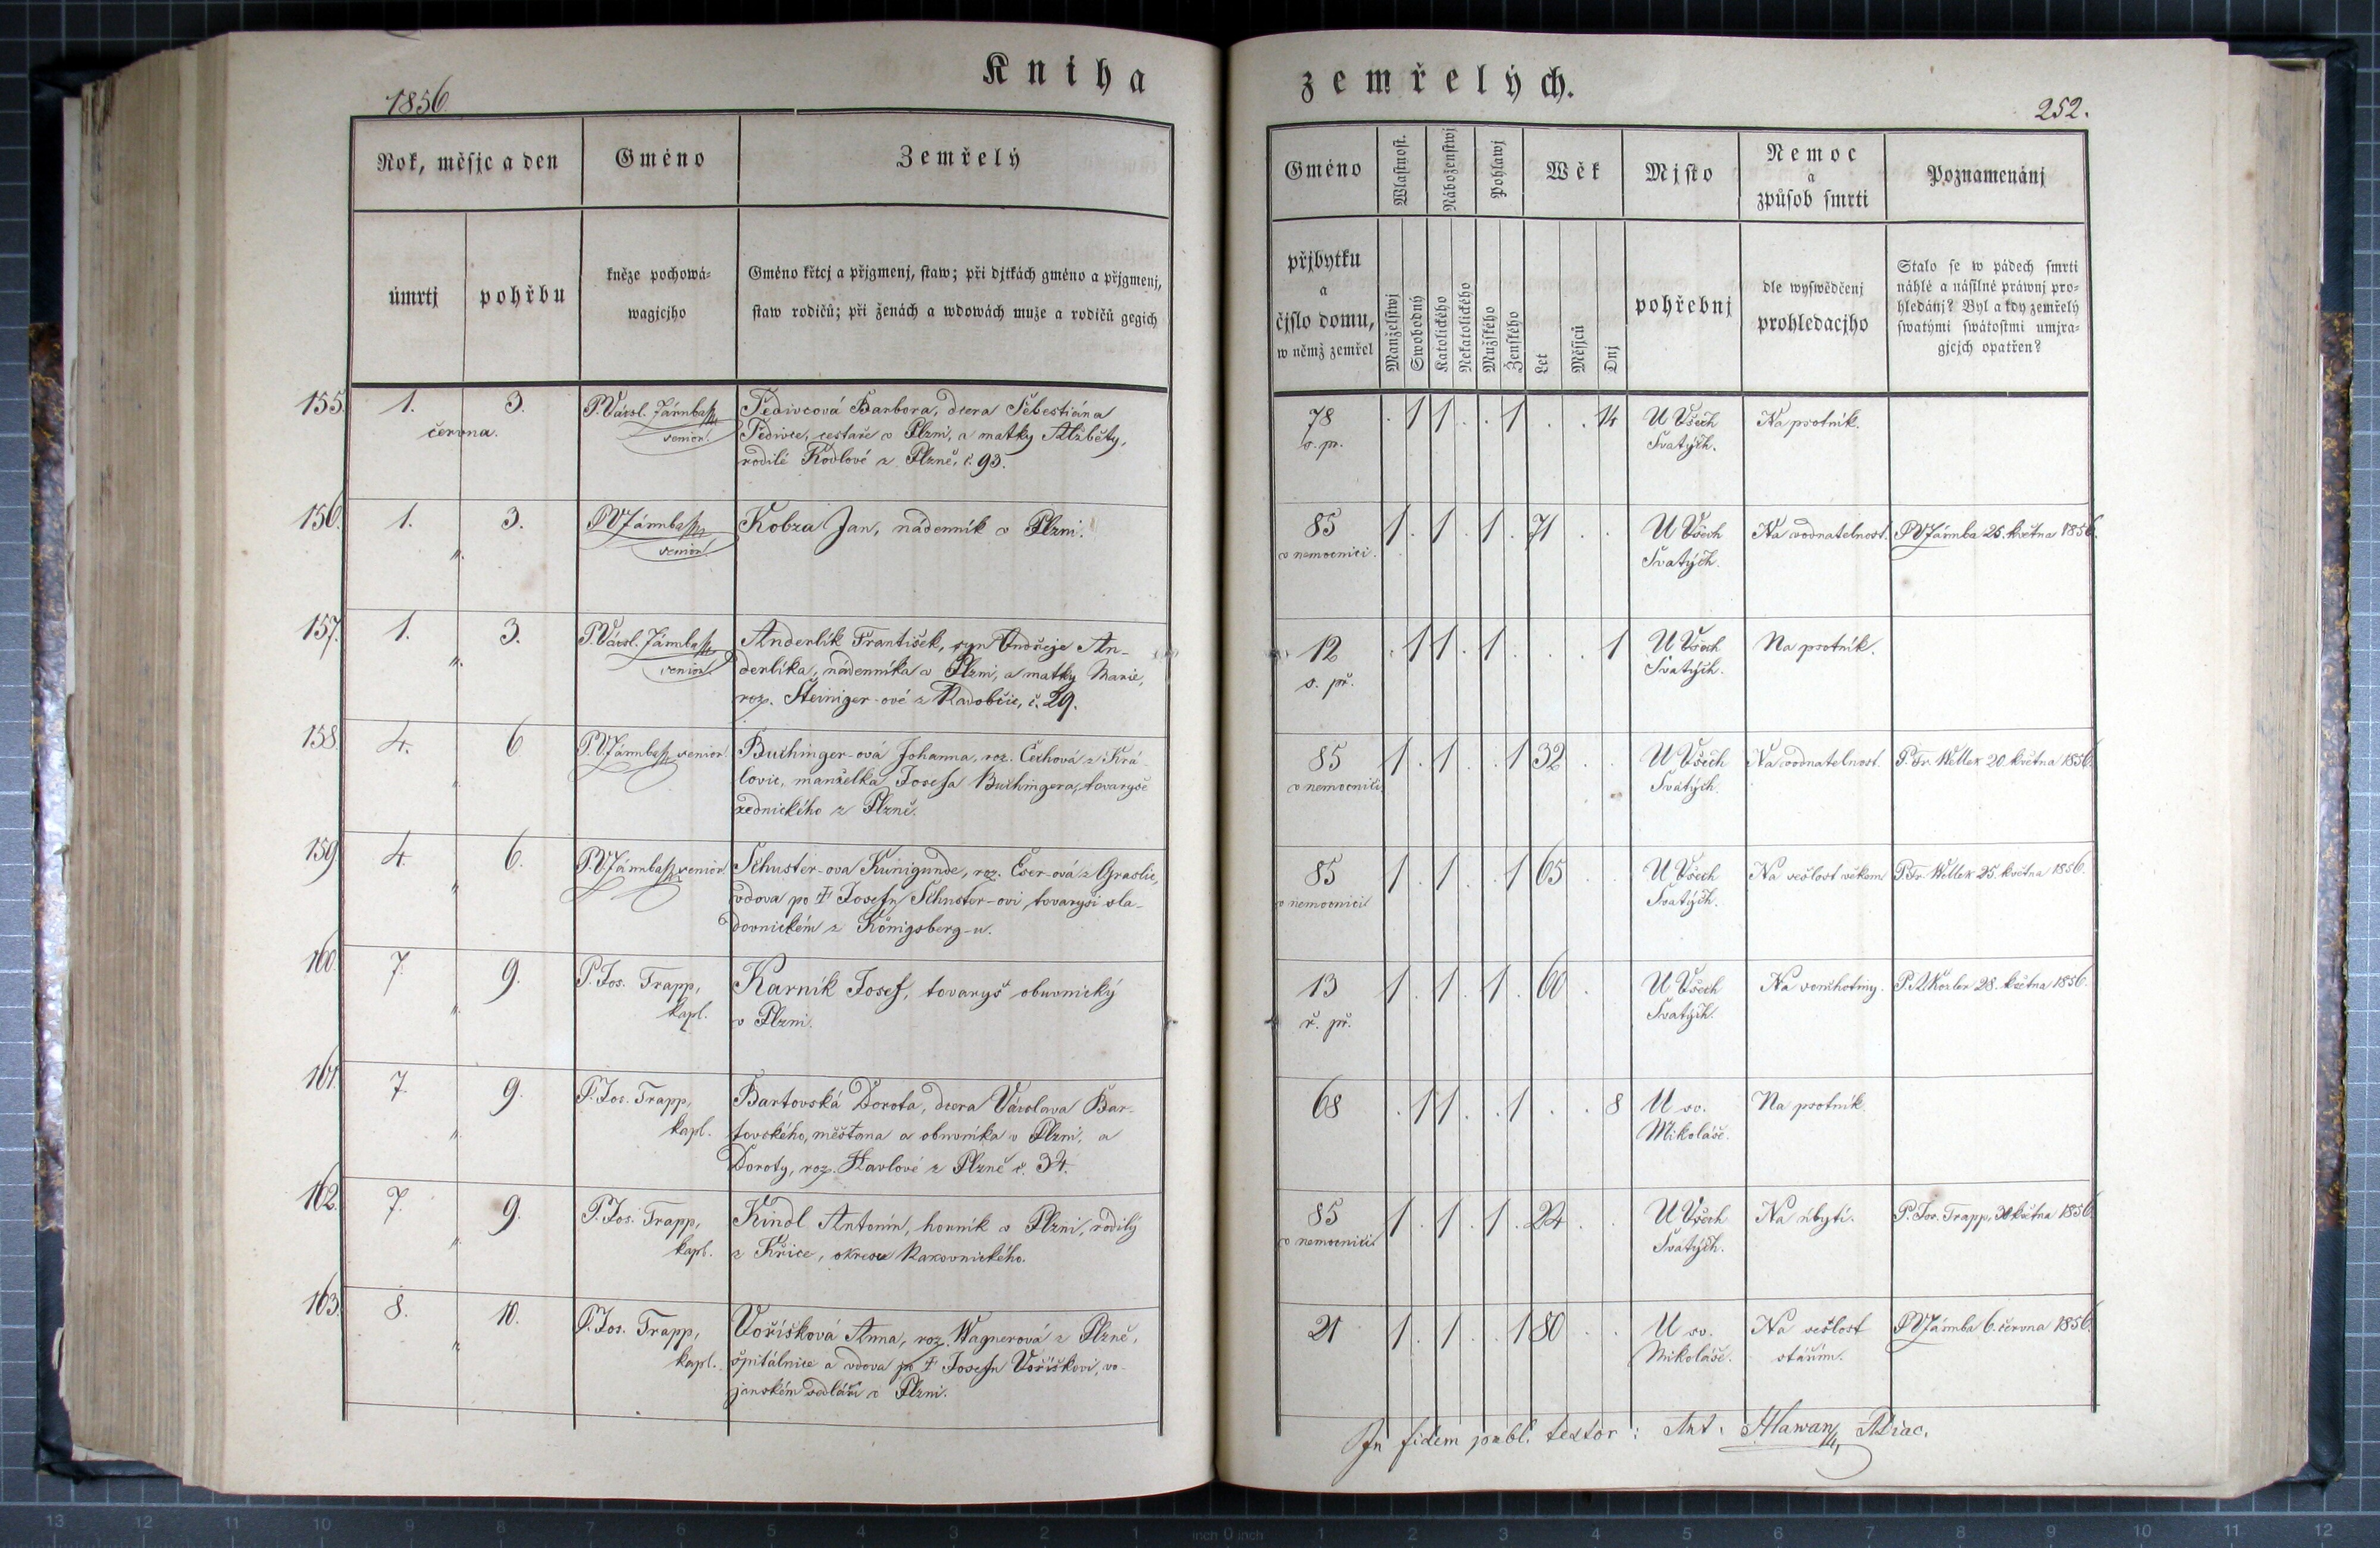 Kniha
1856
Rok, měsjc a den
Gméno
Zemřelý
úmrtj
pohřbu
kněze pochowá-
wagjcjho
Gméno křtcj a přjgmenj, staw; při djtkách gméno a přjgmenj,
staw rodičů; při ženách a wdowách muže a rodičů gegich
155.
1.
3.
června.
P. Václ. Járnba
senior.
Šedivcová Barbora, dcera Šebestiána
Šedivce, cestaře v Plzni, a matky Alžběty,
rodilé Kodlové z Plzně, č. 93.
156.
1.
3.
"
P. V. Járnba
senior.
Kobza Jan, nádenník v Plzni.
157.
1.
3.
"
P. Václ. Járnba
senior.
Anderlík František, syn Ondřeje An-
derlíka, nádenníka v Plzni, a matky Marie,
roz. Steiniger-ové z Radobčic, č. 29.
158.
4.
6
"
P. V. Járnba senior.
Buchinger-ová Johanna, roz. Čechová z Krá-
lovic, manželka Josefa Buchingera, tovaryše
zednického z Plzně.
159
4.
6.
"
P. V. Járnba senior.
Schuster-ova Kunigunde, roz. Eser-ová z Graslic,
vdova po † Josefu Schuster-ovi tovaryši sla-
dovnickém z Königsberg-u.
160.
7.
9.
"
P. Jos. Trapp,
kapl.
Karník Josef, tovaryš obuvnický
v Plzni.
161.
7.
9.
"
P. Jos. Trapp,
kapl.
Bartovská Dorota, dcera Václava Bar-
tovského, měšťana a obuvníka v Plzni, a
Doroty, roz. Havlové z Plzně č. 34.
162.
7.
9.
"
P. Jos. Trapp,
kapl.
Kindl Antonín, horník v Plzni, rodilý
z Křice, okresu Rakovnického.
163.
8.
10.
"
P. Jos. Trapp,
kapl.
Voříšková Anna, roz. Wagnerová z Plzně,
špitálnice a vdova po † Josefu Voříškovi, vo-
janském sedláři v Plzni.
zemřelých.
252.
Gméno
Wlastnost.
Náboženstwj
Pohlawj
Wěk
Mjsto
Nemoc
a
způsob smrti
Poznamenánj
přjbytku
a
čjslo domu,
w němž zemřel
Manželstwj
Swobodný
Katolického
Nekatolického
Mužského
Ženského
Let
Měsjců
Dnj
pohřebnj
dle wyswědčenj
prohledacjho
Stalo se w pádech smrti
náhlé a násilné práwnj pro-
hledánj? Byl a kdy zemřelý
swatými swátostmi umjra-
gjcjch opatřen?
78 . 1 1 . . 1 . . 14 U Všech Na psotník.
s. pr. Svatých.
85 1 . 1 . 1 . 71 . . U Všech Na vodnatelnost. P. V. Járnba 25. května 1856.
v nemocnici. Svatých.
12 . 1 1 . 1 . . . 1 U Všech Na psotník.
s. př. Svatých.
85 1 . 1 . . 1 32 . . U Všech Na vodnatelnost. P. Fr. Wellek 20. května 1856.
v nemocnici. Svatých.
85 1 . 1 . . 1 65 . . U Všech Na sešlost věkem P. Fr. Wellek 25. května 1856.
v nemocnici Svatých.
13 1 . 1 . 1 . 60 . . U Všech Na souchotiny. 28. května 1856.
ř. př. Svatých.
68 . 1 1 . . 1 . . 8 U sv. Na psotník.
Mikoláše.
85 1 . 1 . 1 . 24 . . U Všech Na úbytí. P. Jos. Trapp, května 1856.
v nemocnici Svatých.
21 1 . 1 . . 1 80 . . U sv. Na sešlost P. V. Járnba 6. června 1856.
Mikoláše. stářím.
In fidem publ. textor: Ant. Hlawan,
inch 0 inch
13 12 11 10 9 8 7 6 5 4 3 2 1
1 2 3 4 5 6 7 8 9 10 11 12